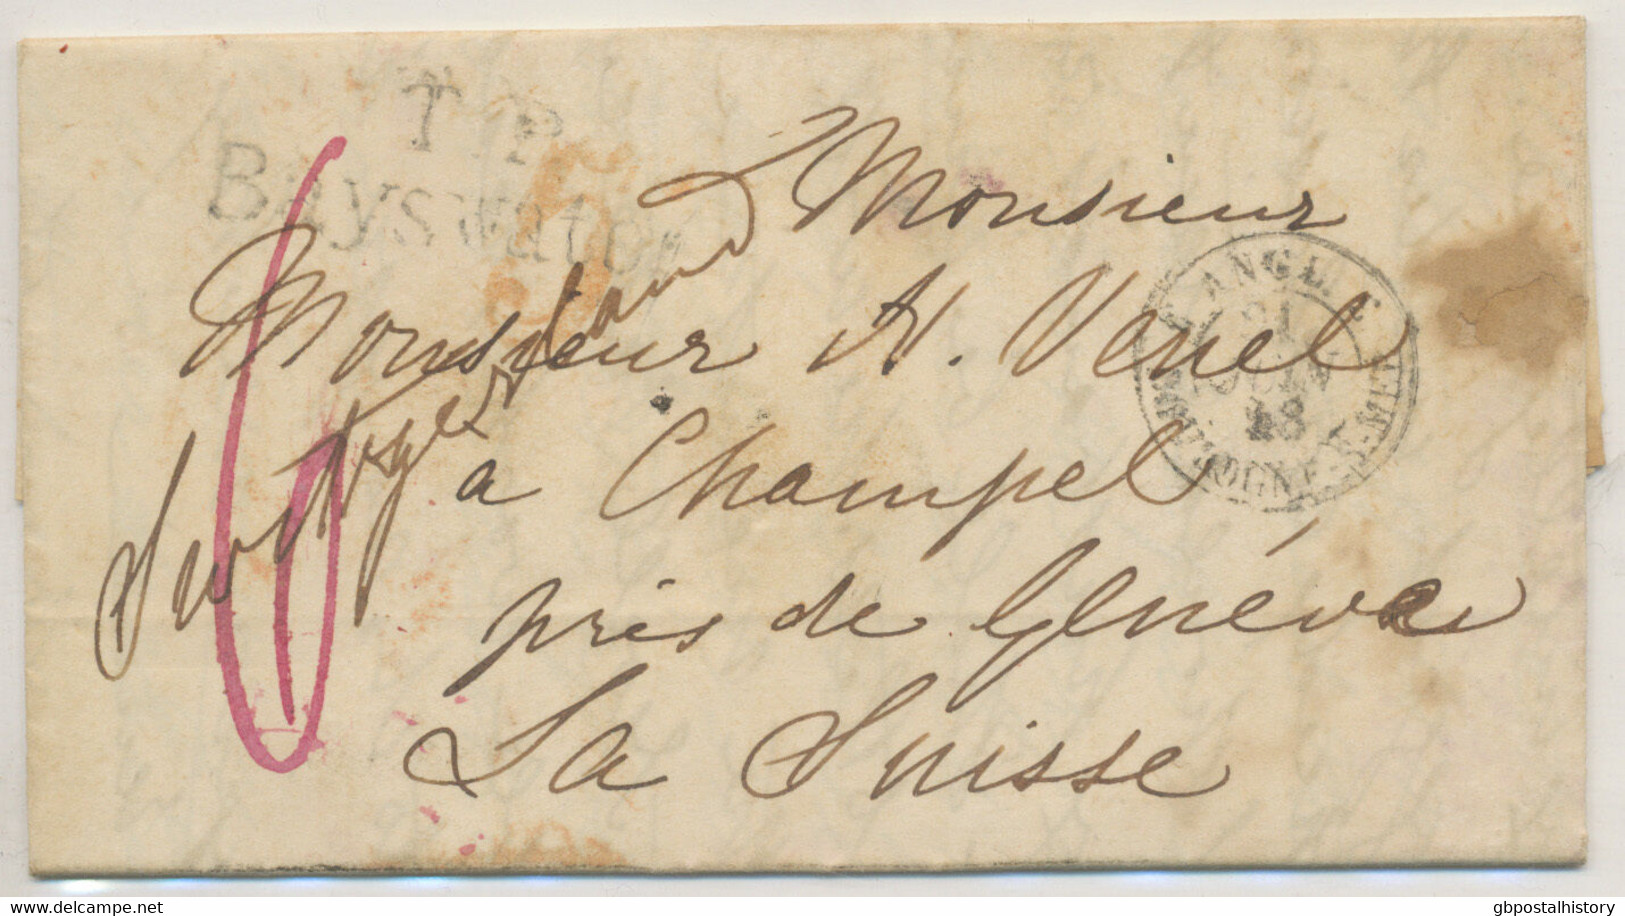 T.P
Bayswater
Monsieur
Monsieur H. Venel
a Champel
près de Genéve
La Suisse
Switzerland
ANGL.
21
JUIN
48
BOULOGNE-S-MER
delcampe.net
gbpostalhistory